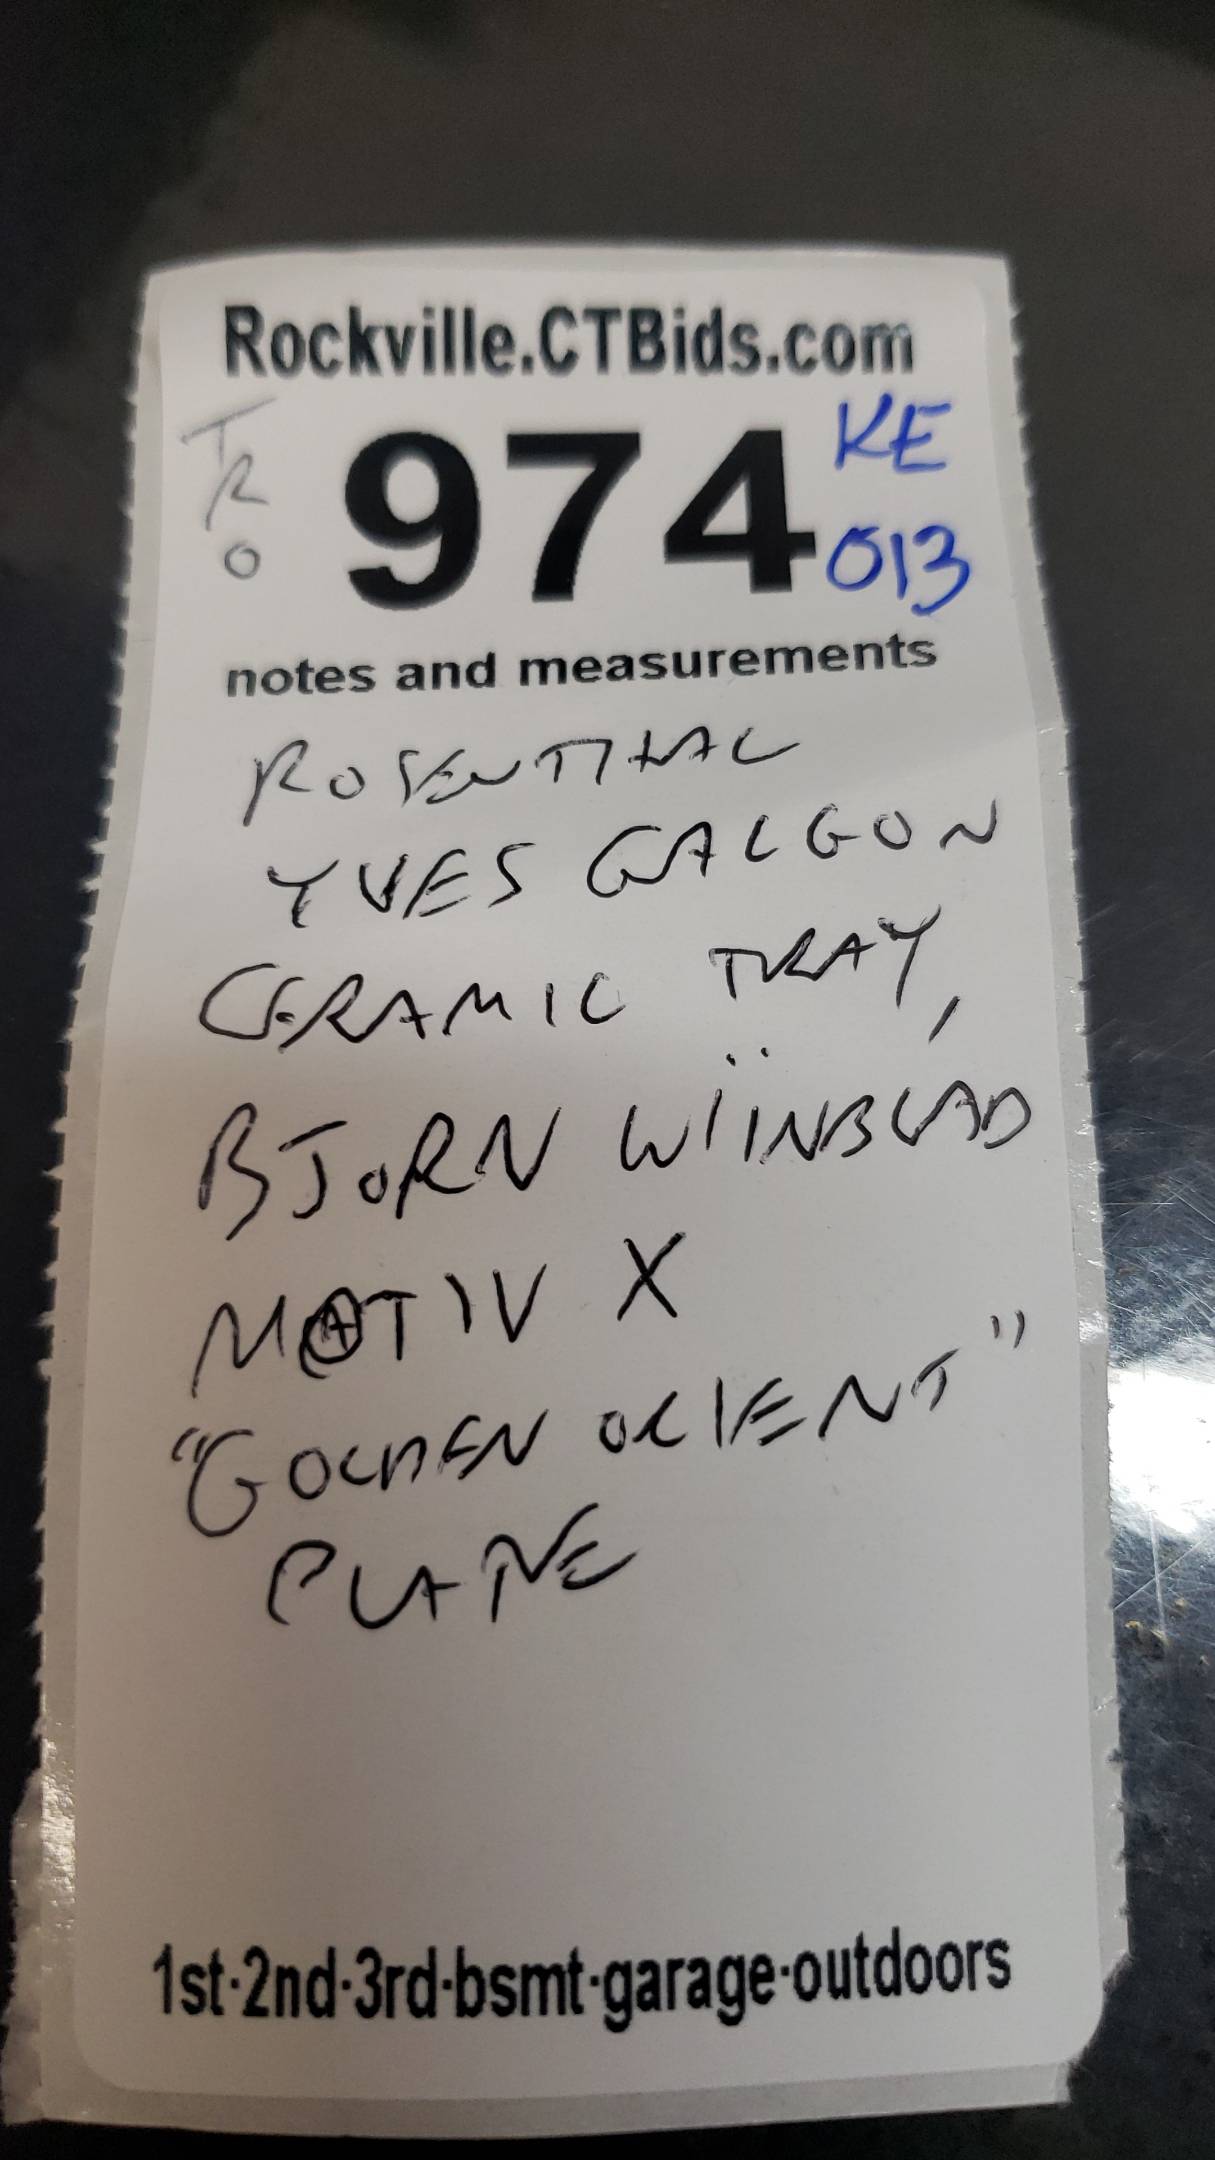 Rockville.CTBids.com
TRO 974 KE
013
notes and measurements
ROSENTHAL
YVES GALGON
CERAMIC TRAY,
BJORN WIINBLAD
MOTIV X
"GOLDEN ORIENT"
PLATE
1st·2nd·3rd·bsmt·garage·outdoors